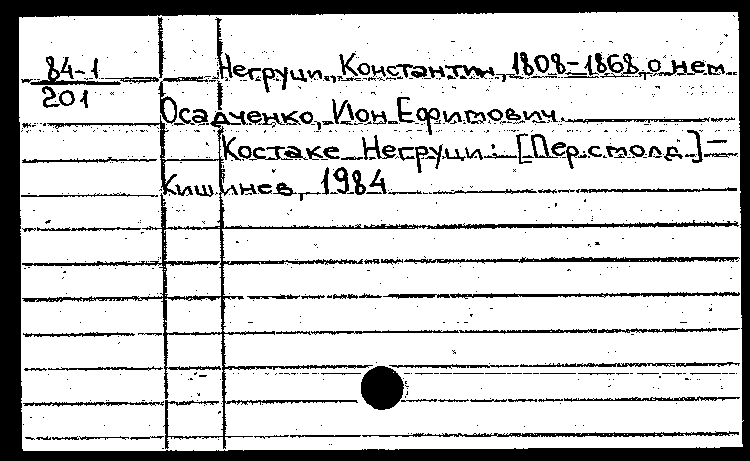 84-1
201
Негруци, Константин, 1808-1868, о нем
Осадченко, Ион Ефимович.
Костаке Негруци: [Пер. с молд.] —
Кишинев, 1984